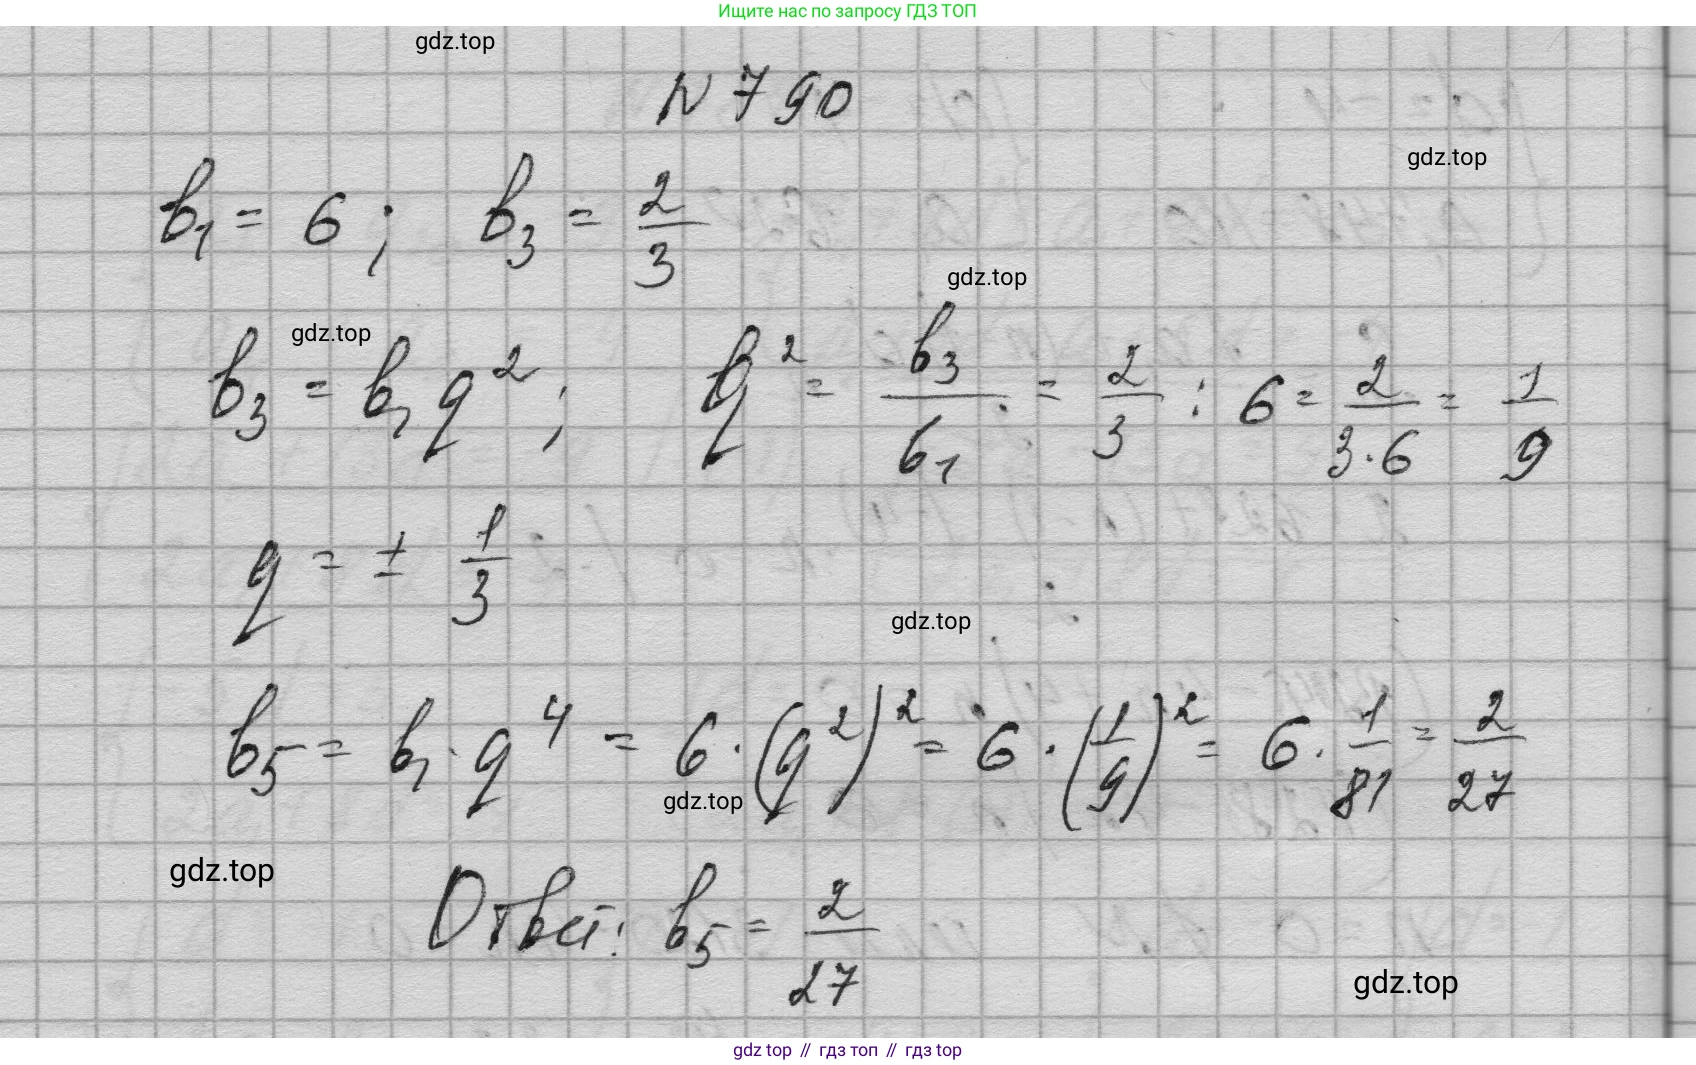 Ищите нас по запросу ГДЗ ТОП
gdz.top
N 790
gdz.top
b₁ = 6 ; b₃ = 2/3
gdz.top
gdz.top
b₃ = b₁ q² ; q² = b₃/b₁ = 2/3 : 6 = 2/(3·6) = 1/9
q = ± 1/3
gdz.top
b₅ = b₁ · q⁴ = 6 · (q²)² = 6 · (1/9)² = 6 · 1/81 = 2/27
gdz.top
gdz.top
Ответ: b₅ = 2/27
gdz.top
gdz top // гдз топ // гдз top